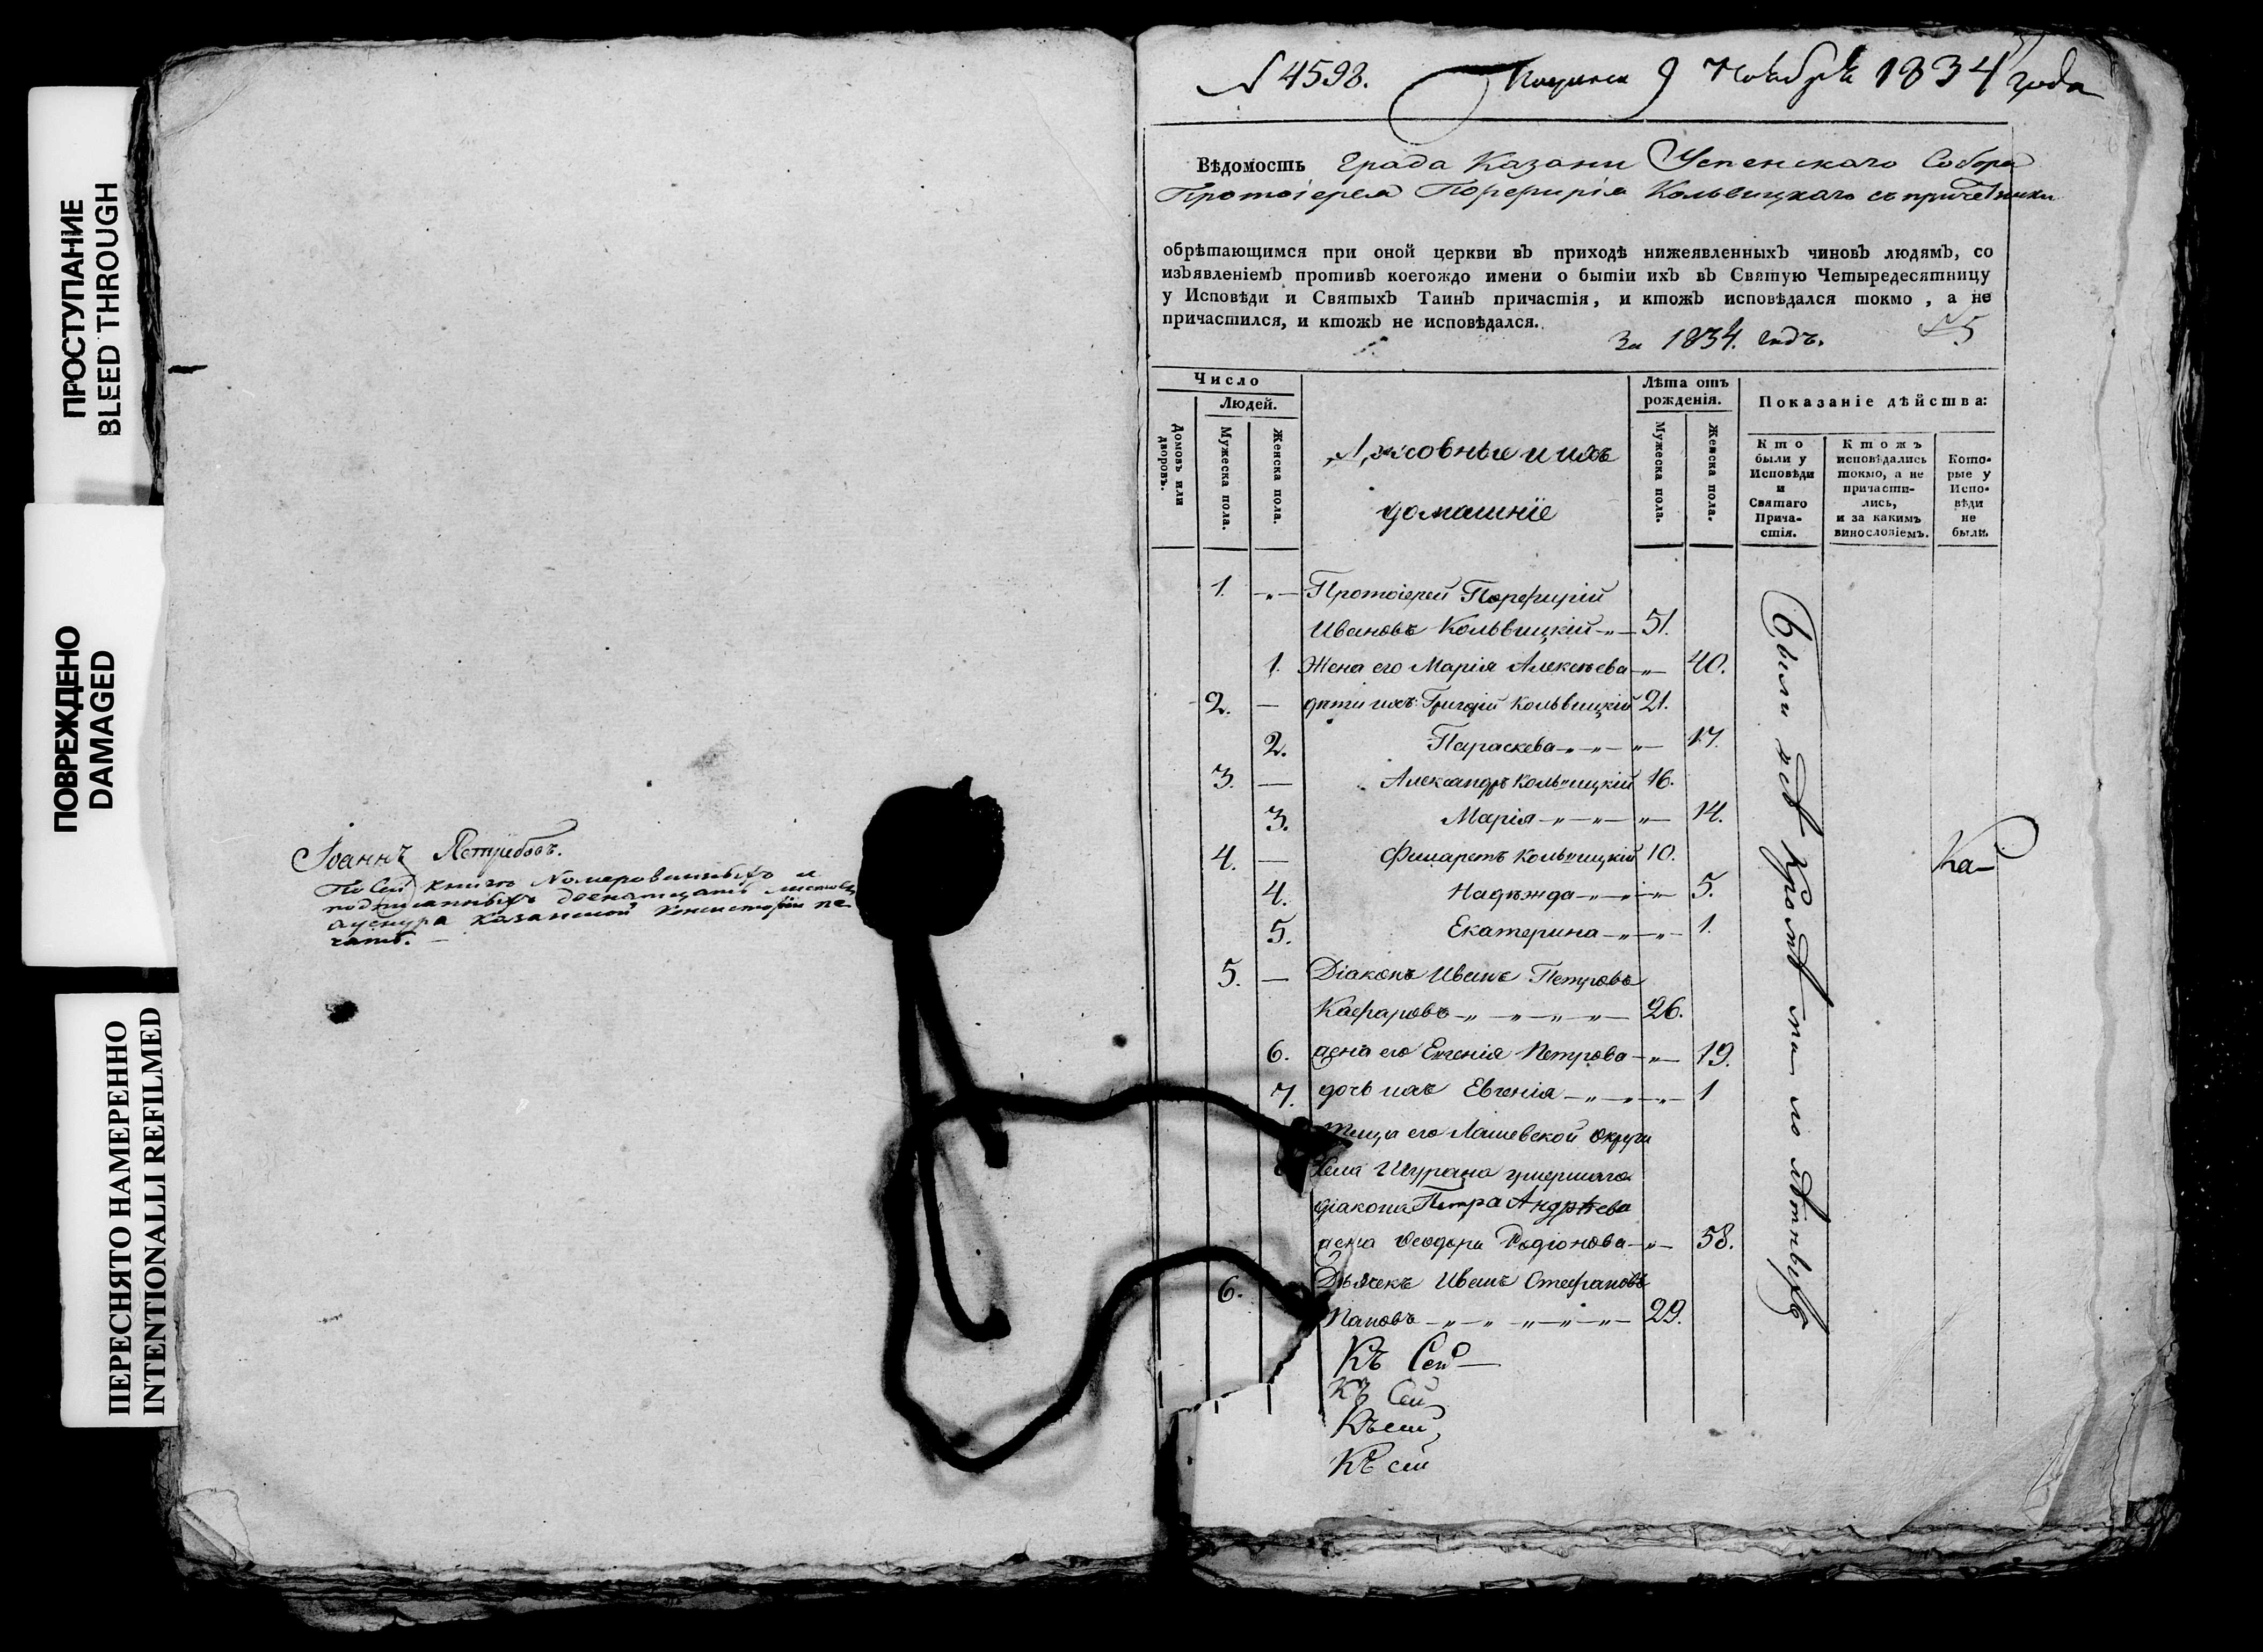 ПРОСТУПАНИЕ
BLEED THROUGH
ПОВРЕЖДЕНО
DAMAGED
ПЕРЕСНЯТО НАМЕРЕННО
INTENTIONALLI REFILMED
Іоаннъ
По Сей книгѣ Номерованныхъ и
подписанныхъ двенатцать листовъ
Казанской Консисторіи пе
чать.
№ 4598. 9 Ноября 1834 года
Вѣдомость Града Казани Успенскаго Собора
Протоіерея Порфирія Кольвицкаго съ причетники
обрѣтающимся при оной церкви въ приходѣ нижеявленныхъ чиновъ людямъ, со
изъявленіемъ противъ коегождо имени о бытіи ихъ въ Святую Четыредесятницу
у Исповѣди и Святыхъ Таинъ причастія, и ктожъ исповѣдался токмо, а не
причастился, и ктожъ не исповѣдался.
За 1834. годъ.
Число
Людей.
Домовъ или дворовъ.
Мужеска пола.
Женска пола.
Духовные и ихъ
домашніе
Лѣта отъ
рожденія.
Мужеска пола.
Женска пола.
Показаніе дѣйства:
Кто
были у
Исповѣди
и
Святаго
Прича-
стія.
Ктожъ
исповѣдались
токмо, а не
причасти-
лись,
и за какимъ
винословіемъ.
Кото-
рые у
Испо-
вѣди
не
были.
1. -„- Протоіерей Порфирій
Ивановъ Кольвицкій -„- 51.
1. Жена его Марія Алексѣева -„- 40.
2. — дѣти ихъ: Григорій Кольвицкій 21.
2. Параскева -„-„-„- 17.
3. — Александръ Кольвицкій 16.
3. Марія -„-„-„- 14.
4. — Филаретъ Кольвицкій 10.
4. Надѣжда -„-„- 5.
5. Екатерина -„-„- 1.
5. — Діаконъ Иванъ Петровъ
Кафаровъ -„-„-„-„- 26.
6. жена его Евгенія Петрова -„- 19.
7. дочь ихъ Евгенія -„-„-„- 1
теща его Лаишевской округи
Села Шурана умершаго
діакона Петра Андрѣева
жена Феодора Родіонова -„- 58.
6. Дьячекъ Иванъ Стефановъ
Пановъ -„-„-„-„-„- 29.
Были всѣ кромѣ малолѣтныхъ
Ка-
Къ Сей —
Къ Сей
Къ сей
Къ сей